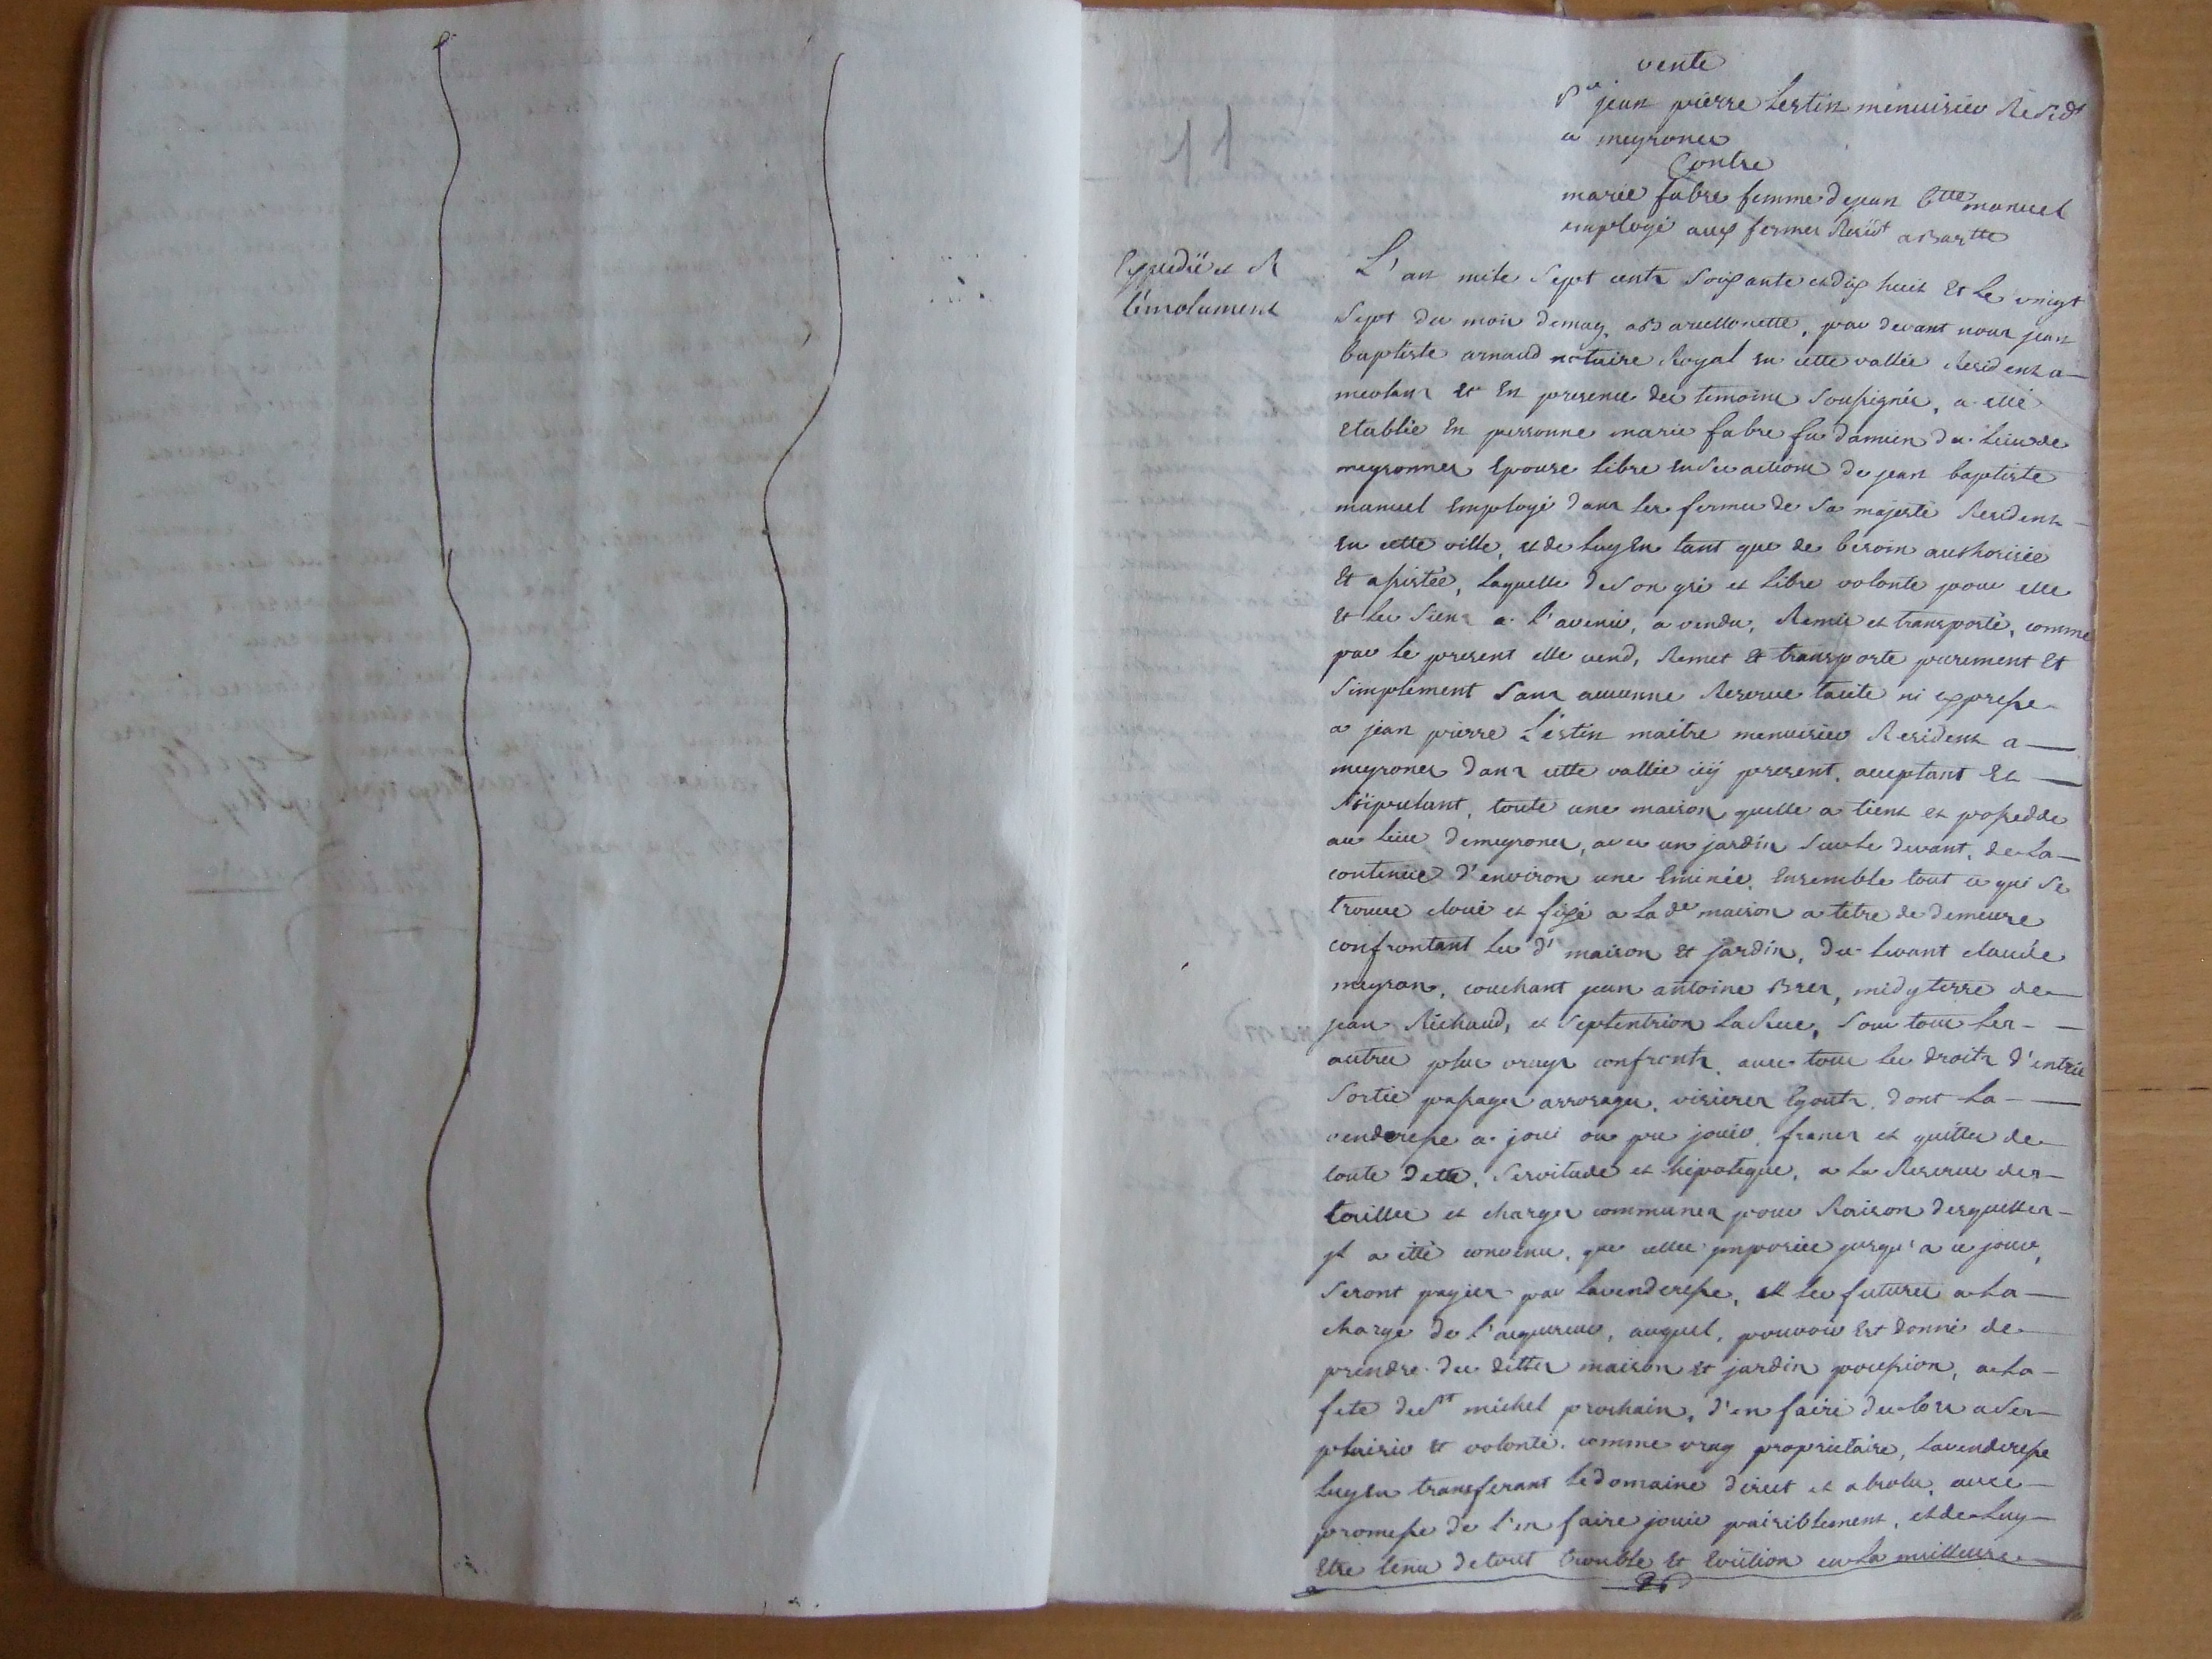 11
vente
Sr jean pierre Lestin menuisier Resid.t
a meyrones
Contre
marie fabre femme de jean Btte manuel
employé aux fermes Resid.t a Bartte
Expedié et R
l'émolument
L'an mile sept cents soixante et dix huit Et le vingt
Sept du mois de may a Barcellonette, par devant nous jean
baptiste arnaud notaire Royal en cette vallée Resident a
meolans Et En presence des temoins soussignés, a eté
etablie En personne marie fabre fu damien du lieu de
meyronnes Epouse libre en ses actions de jean baptiste
manuel Employé dans les fermes de Sa majesté Resident
En cette ville, et de luy En tant que de besoin authorisée
Et assistée, laquelle de son gré et libre volonte pour elle
Et les Siens a l'avenir, a vendu, Remis et transporté, comme
par le present elle vend, Remet Et transporte purement Et
Simplement Sans aucunne Reserve tacite ni expresse
a jean pierre Léstin maitre menuisier Resident a
meyrones dans cette vallée icÿ present, acceptant Et
stipulant, toute une maison quelle a tient et possedde
au lieu de meyrones, avec un jardin sur le devant, de la
contenüe d'environ une Eminée, Ensemble tout ce qui se
trouve cloué et fixé a la de maison a tetre de demeure
confrontant les d' maison Et jardin, du levant claude
meyran, couchant jean antoine Bres, midy terre de
jean Richaud, et Septentrion la Rue, sous tous les
autres plus vrays confronts, avec tous les droits d'entrée
Sortie passages arrosages, visieres Egouts, dont la
venderesse a joui ou pu jouir, francs et quittes de
toute Dette, Servitude et hipoteque, a la Reserve des
tailles et charges communes pour Raison desquelles
jl a etté convenu, que celles jmposées jusqu'a ce jour,
Seront payées par la venderesse, et les futures a la
charge de l'acquereur, auquel, pouvoir Est donné de
prendre des dittes maison Et jardin possession, a la
fete de St michel prochain, d'en faire des lors a Ses
plaisir Et volonté, comme vray proprietaire, la venderesse
luy en transferant le domaine direct et absolu, avec
promesse de l'en faire jouir paisiblement, et de luy
Etre tenu de tout trouble Et Eviction en la meilleure